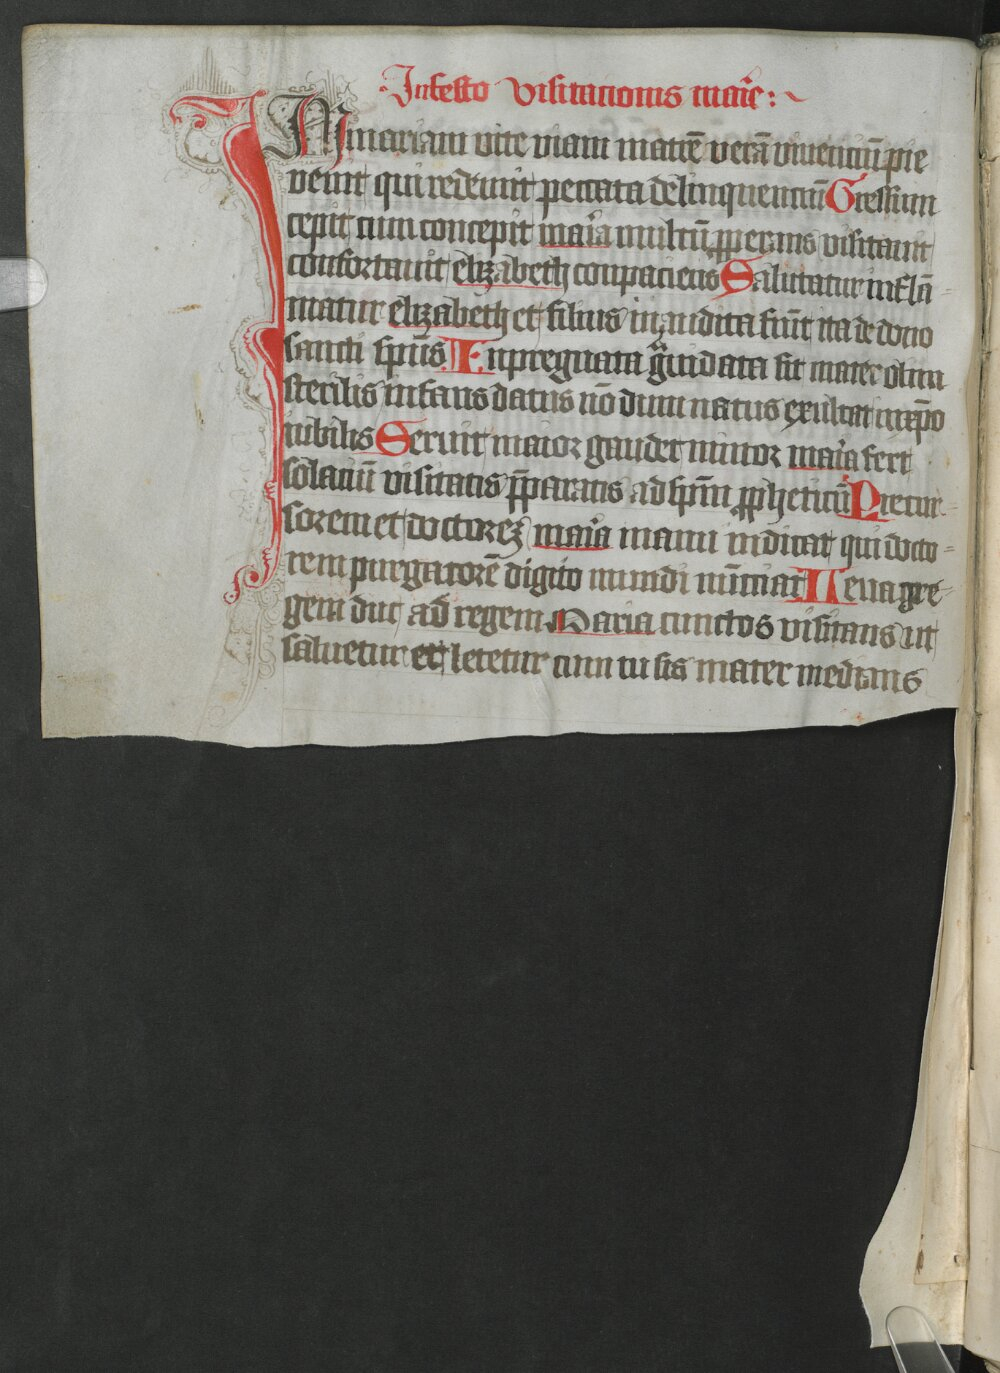 In festo visitacionis marie :~
IN mariam vite viam matrē verā viventiū pie
venit qui redemit peccata delinquentiū Gressum
cepit cum concepit maria multū ꝓperans visitavit
confortavit elizabeth conpaciens Salutatur inflā
matur elizabeth et filius in audita fiūt ita de dono
sancti spūs Inpregnata gͣuidata fit mater olim
sterilis infans datus nō dum natus exultat in xp̄o
iubilis Servit maior gaudet minor maria fert
solaciū visitatis p̄paratis ad spm̄ ꝓpheticū Precur-
sorem et doctorez maria manu indicat qui docto-
rem purgatorē digito mundi nūnciat Neva gre-
gem duc ad regem Maria cunctos visitans ut
salvetur et letetur cum tu sis mater medians